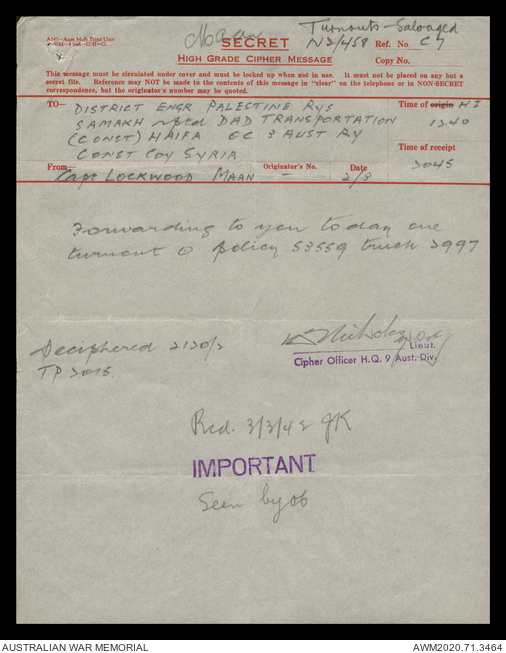 Turnouts - Salvaged
N2/458 Ref. No. C7
SECRET
HIGH GRADE CIPHER MESSAGE
Copy No.
This message must be circulated under cover and must be locked up when not in use. It must not be placed on any but a
secret file. Reference may NOT be made to the contents of this message in "clear" on the telephone or in NON-SECRET
correspondence, but the originator's number may be quoted.
TO— DISTRICT ENGR PALESTINE RYS
SAMAKH rptd DAD TRANSPORTATION
(CONST) HAIFA OC 3 AUST RY
CONST COY SYRIA
Time of origin
1240
Time of receipt
2045
From— Capt LOCKWOOD MAAN
Originator's No. —
Date 2/3
Forwarding to you today one
turnout policy 53559 truck 2997
Deciphered
Lieut.
Cipher Officer H.Q. 9 Aust. Div.
Rcd. 3/3/42 JK
IMPORTANT
Seen by
AUSTRALIAN WAR MEMORIAL
AWM2020.71.3464